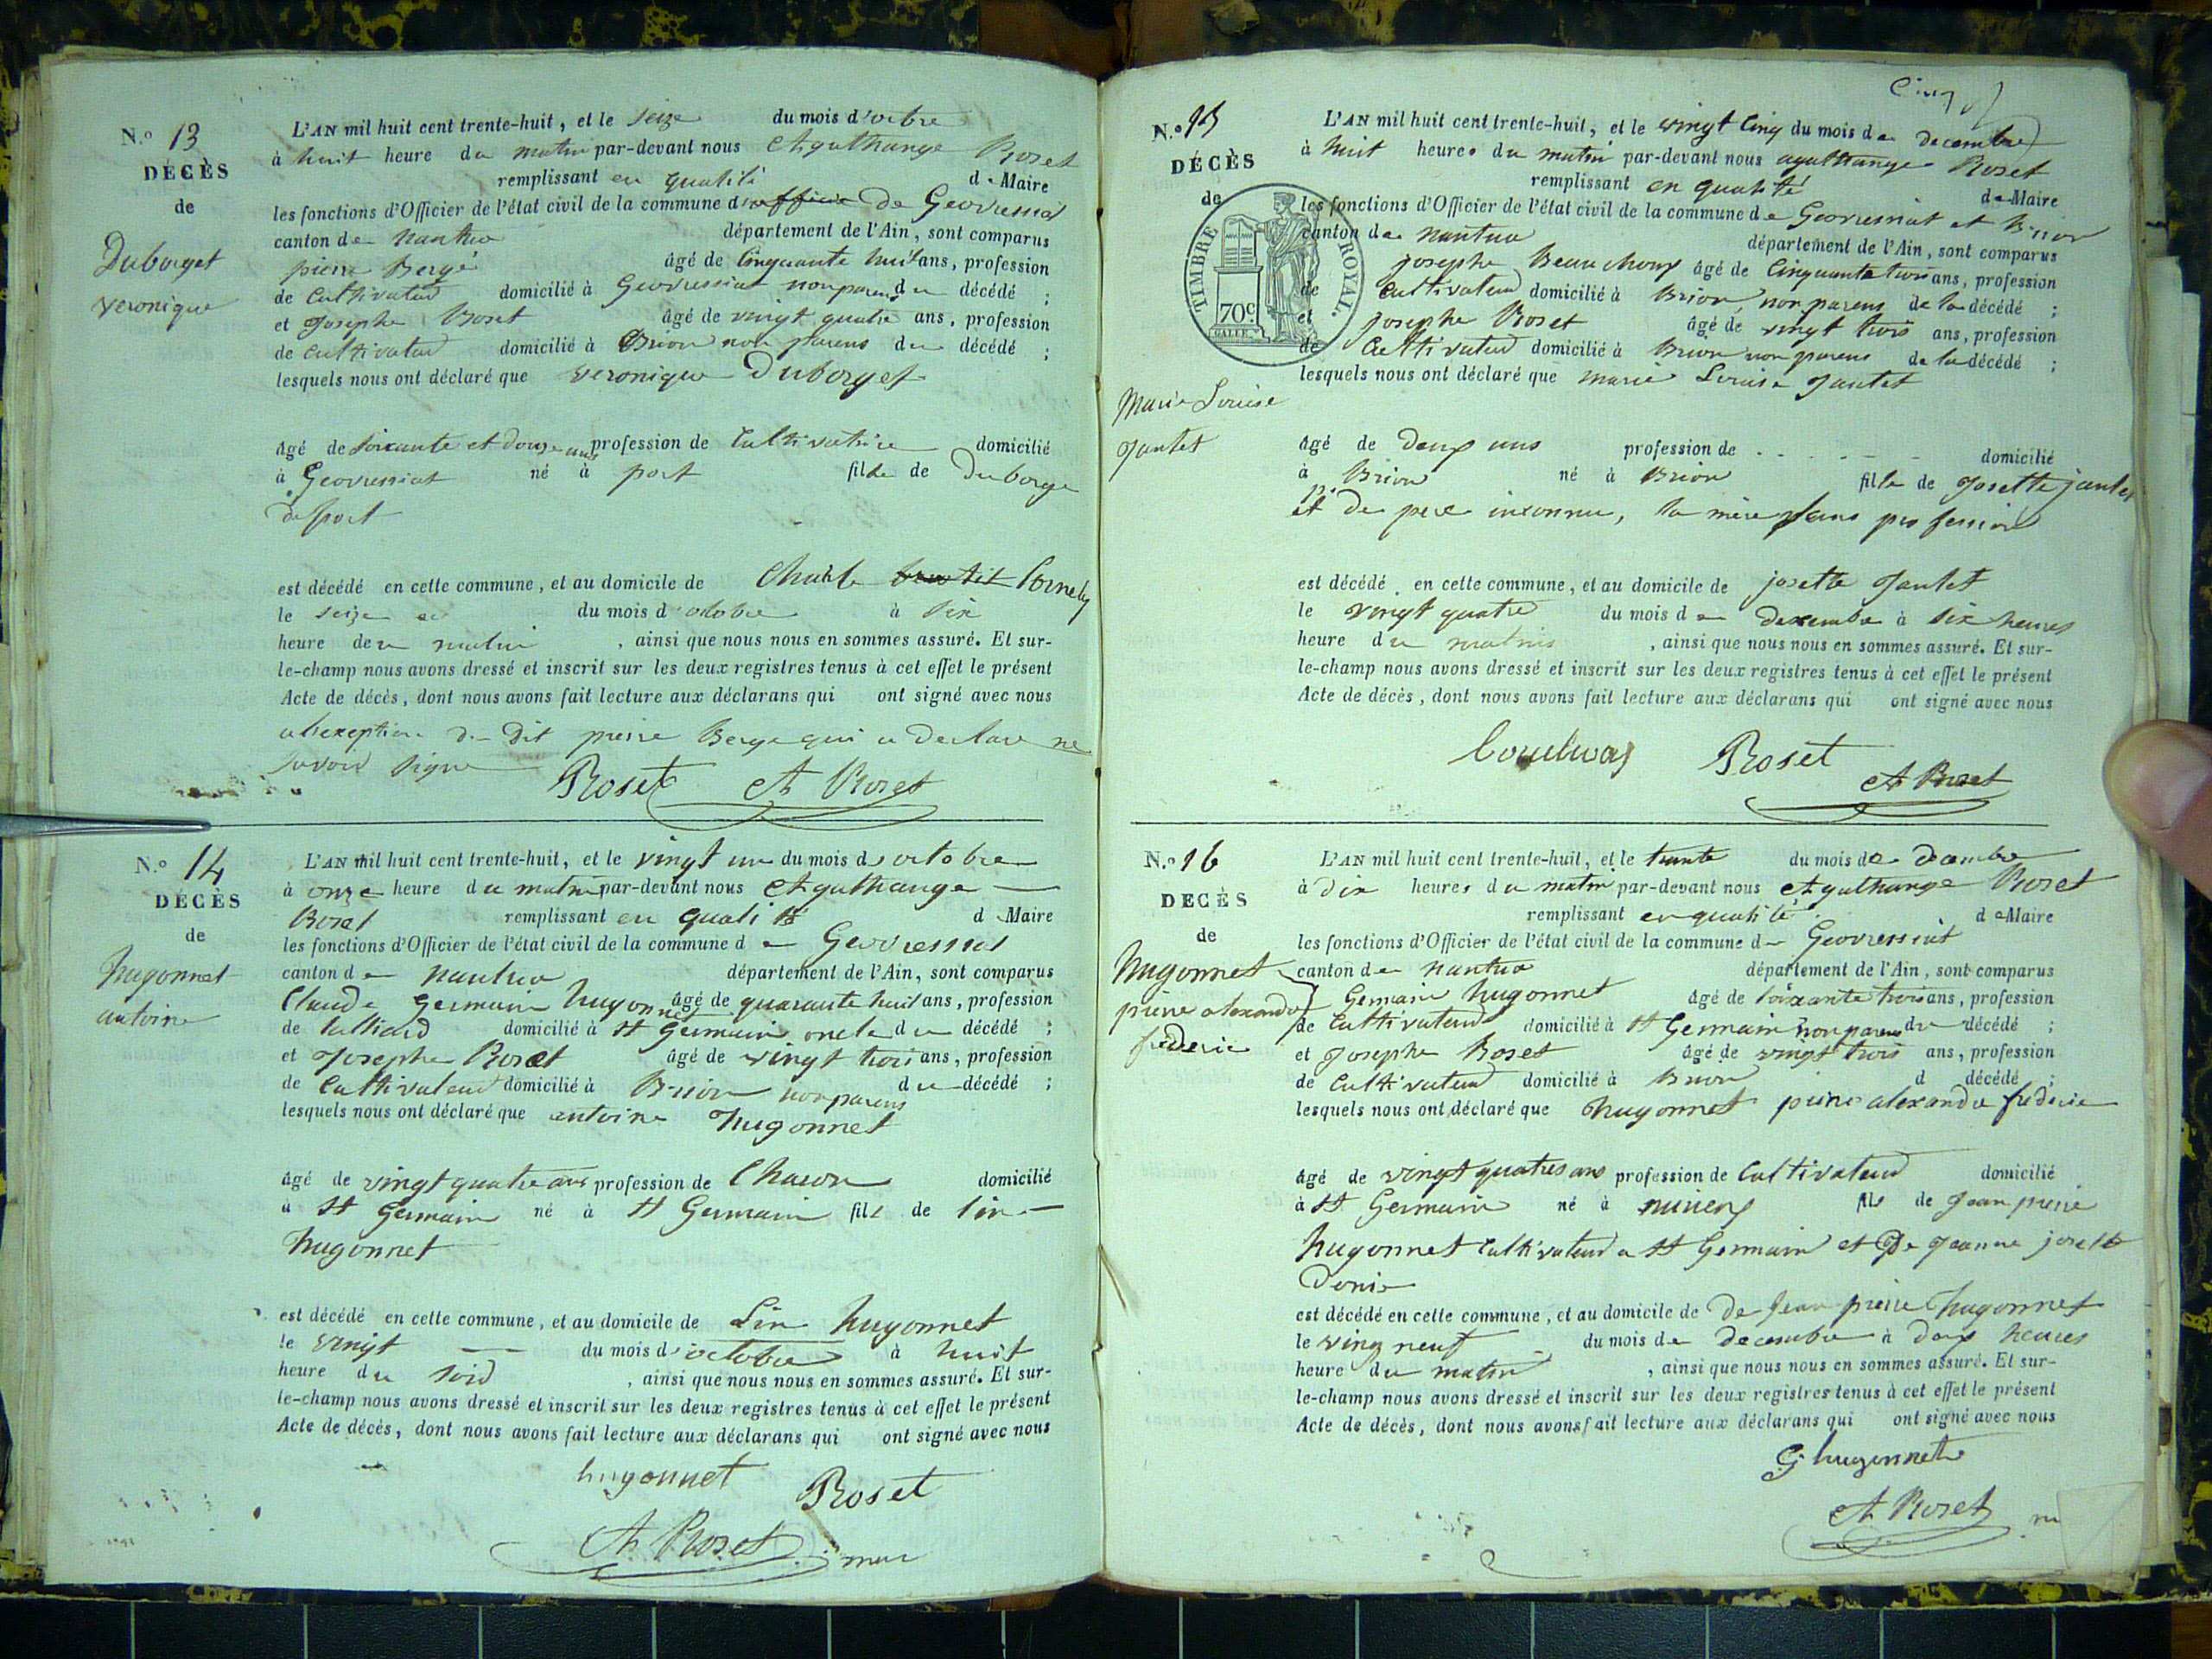 N.° 13
DÉCÈS
de
Duborget
veronique
L'AN mil huit cent trente-huit, et le seize du mois d'octbre
à huit heure du matin par-devant nous Agathange Roset
remplissant en qualité de Maire
les fonctions d'Officier de l'état civil de la commune de Geovressiat
canton de nantua département de l'Ain, sont comparus
pierre Bergé âgé de Cinquante huit ans, profession
de Cultivateur domicilié à Geovressiat non parens du décédé ;
et Josephe Roset âgé de vingt quatre ans, profession
de Cultivateur domicilié à Brion non parens du décédé ;
lesquels nous ont déclaré que veronique Duborget
âgé de soixante et douze ans profession de Cultivatrice domicilié
à Geovressiat né à port fille de Duborge
de port
est décédé en cette commune, et au domicile de Charle Cornely
le seize du mois d'octobre à six
heure de u matin , ainsi que nous nous en sommes assuré. Et sur-
le-champ nous avons dressé et inscrit sur les deux registres tenus à cet effet le présent
Acte de décès, dont nous avons fait lecture aux déclarans qui ont signé avec nous
a lexeption du dit pierre Berge qui a declare ne
savoir signe
Roset A Roset
N.° 14
DÉCÈS
de
hugonnet
antoine
L'AN mil huit cent trente-huit, et le vingt un du mois d'octobre
à onze heure du matin par-devant nous Agathange
Roset remplissant en qualité d Maire
les fonctions d'Officier de l'état civil de la commune de Geovressiat
canton de nantua département de l'Ain, sont comparus
Claude Germain hugonnet âgé de quarante huit ans, profession
de domicilié à St Germain oncle du décédé ;
et Josephe Roset âgé de vingt trois ans, profession
de Cultivateur domicilié à Brion non parens du décédé ;
lesquels nous ont déclaré que antoine hugonnet
âgé de vingt quatre ans profession de Charon domicilié
à St Germain né à St Germain fils de Lin
hugonnet
est décédé en cette commune, et au domicile de Lin hugonnet
le vingt du mois d'octobre à huit
heure du soir , ainsi que nous nous en sommes assuré. Et sur-
le-champ nous avons dressé et inscrit sur les deux registres tenus à cet effet le présent
Acte de décès, dont nous avons fait lecture aux déclarans qui ont signé avec nous
hugonnet Roset
A Roset
Cinq
N.° 15
DÉCÈS
de
TIMBRE ROYAL.
70c.
Marie Louise
Jantet
L'AN mil huit cent trente-huit, et le vingt Cinq du mois de decembre
à huit heures du matin par-devant nous agathange Roset
remplissant en qualité de Maire
les fonctions d'Officier de l'état civil de la commune de Geovressiat et Brion
canton de nantua département de l'Ain, sont comparus
josephe Beauchoux âgé de Cinquante trois ans, profession
de Cultivateur domicilié à Brion non parens de la décédé ;
et josephe Roset âgé de vingt trois ans, profession
de Cultivateur domicilié à Brion non parens de la décédé ;
lesquels nous ont déclaré que marie Louise Jantet
âgé de deux ans profession de domicilié
à Brion né à Brion fille de Josette jantet
et de pere inconnu, la mère sans profession
est décédé en cette commune, et au domicile de josette Jantet
le vingt quatre du mois de decembre à six heures
heure du matin , ainsi que nous nous en sommes assuré. Et sur-
le-champ nous avons dressé et inscrit sur les deux registres tenus à cet effet le présent
Acte de décès, dont nous avons fait lecture aux déclarans qui ont signé avec nous
Roset
A Roset
N.° 16
DECÈS
de
hugonnet
pierre alexandre
frederic
L'AN mil huit cent trente-huit, et le trente du mois de decembre
à dix heures du matin par-devant nous Agathange Roset
remplissant en qualité de Maire
les fonctions d'Officier de l'état civil de la commune de Geovressiat
canton de nantua département de l'Ain, sont comparus
Germain hugonnet âgé de soixante trois ans, profession
de Cultivateur domicilié à St Germain non parens du décédé ;
et Josephe Roset âgé de vingt trois ans, profession
de Cultivateur domicilié à Brion d décédé ;
lesquels nous ont déclaré que hugonnet pierre alexandre frederic
âgé de vingt quatres ans profession de Cultivateur domicilié
à St Germain né à fils de Jean pierre
hugonnet Cultivateur a St Germain et De Jeanne josette
Donis
est décédé en cette commune, et au domicile de De jean pierre hugonnet
le ving neuf du mois de decembre à deux heures
heure du matin , ainsi que nous nous en sommes assuré. Et sur-
le-champ nous avons dressé et inscrit sur les deux registres tenus à cet effet le présent
Acte de décès, dont nous avons fait lecture aux déclarans qui ont signé avec nous
G hugonnet
A Roset